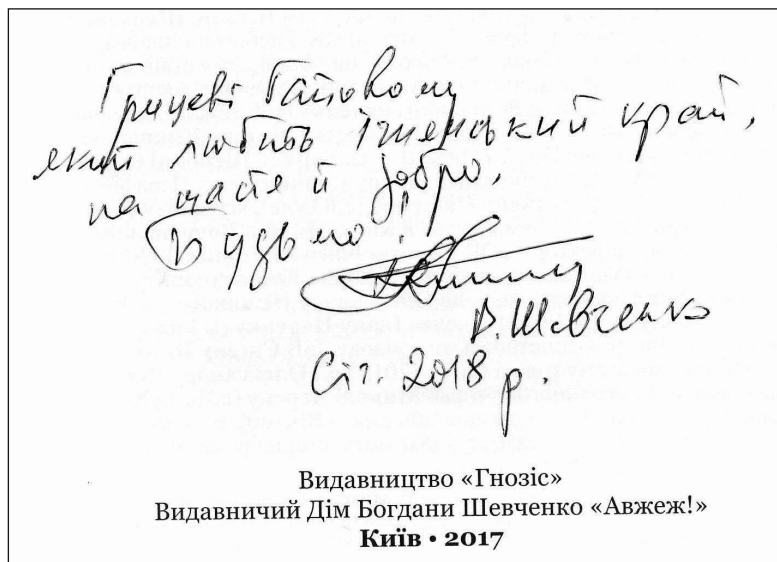 Грицеві Гайовому,
який любить Ічнянський край,
на щастя й добро,
Будьмо!
В. Шевченко
Січ. 2018 р.
Видавництво «Гнозіс»
Видавничий Дім Богдани Шевченко «Авжеж!»
Київ • 2017